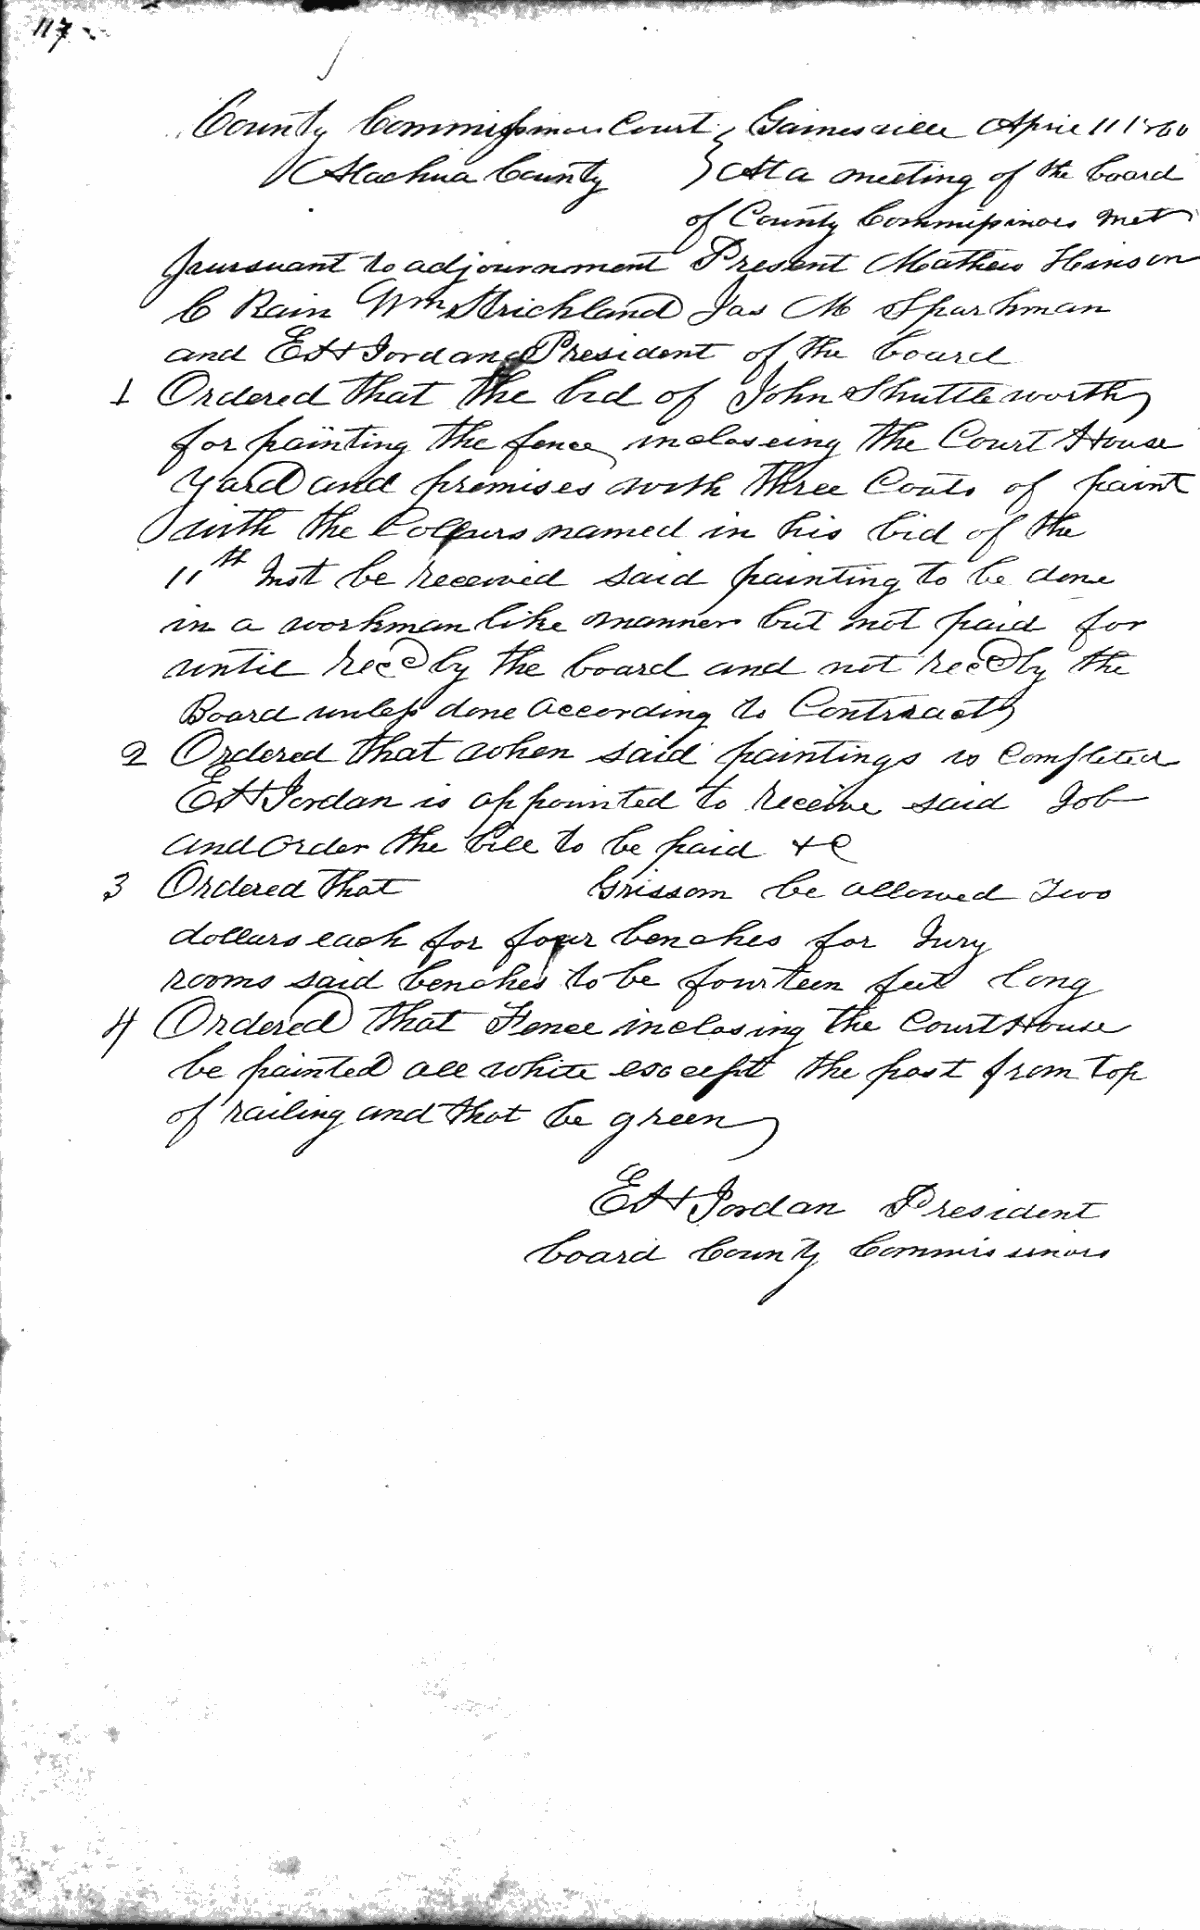 117
County Commissinors Court } Gainesville April 11 1860
Alachua County } At a meeting of the board
of County Commissinors met
pursuant to adjournment Present Mathew Hinson
C Rain Wm Strickland Jas M Sparkman
and E A Jordan President of the board
1 Ordered that the bid of John Shuttleworth
for painting the fence incloseing the Court House
Yard and premises with three Coats of paint
with the Collours named in his bid of the
11th Inst be received said painting to be done
in a workman like manner but not paid for
until recd by the board and not recd by the
Board unless done according to Contract
2 Ordered that when said paintings is completed
E A Jordan is appointed to receive said Job
and order the bill to be paid &C
3 Ordered that Grissom be allowed Two
dollars each for four benches for Jury
rooms said benches to be fourteen feet long
4 Ordered that Fence inclosing the Court House
be painted all white except the post from top
of railing and that be green
E A Jordan President
board County Commissinors